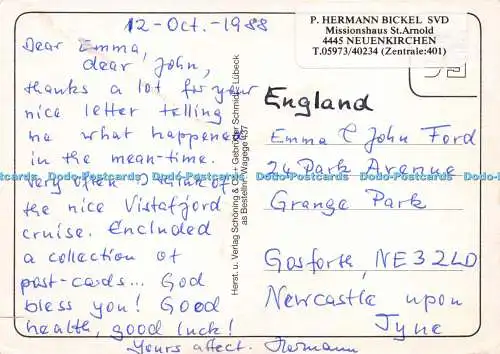 12-Oct.-1988
Dear Emma,
dear John,
thanks a lot for your
nice letter telling
me what happened
in the mean-time.
Very often I think of
the nice Vistafjord
cruise. Encluded
a collection of
post-cards... God
bless you! Good
health, good luck!
Yours affect. Hermann
Herst. u. Verlag Schöning & Co + Gebrüder Schmidt, Lübeck
as Bestellnr. Wagege 437
P. HERMANN BICKEL SVD
Missionshaus St.Arnold
4445 NEUENKIRCHEN
T.05973/40234 (Zentrale:401)
England
Emma & John Ford
24 Park Avenue
Grange Park
Gosforth, NE32LD
Newcastle upon
Tyne
Dodo-Postcards Dodo-Postcards Dodo-Postcards Dodo-Postcards Dodo-Postcards